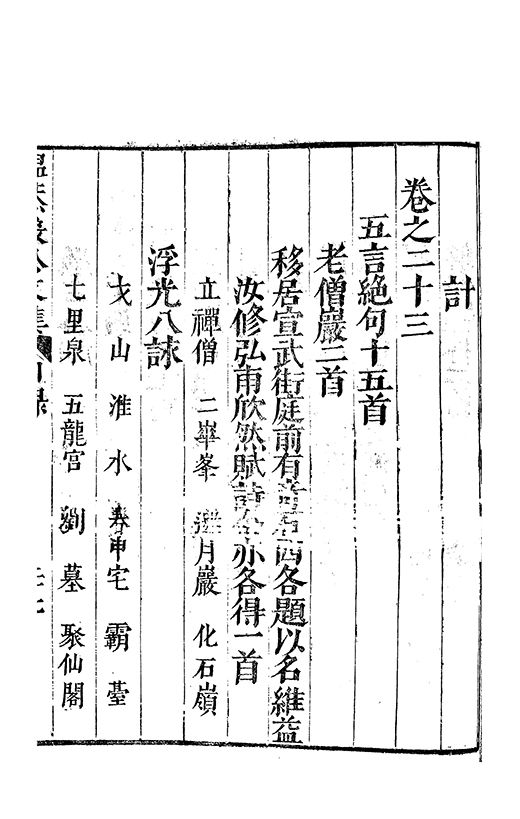 計
卷之二十三
五言絕句十五首
老僧巖二首
移居宣武街庭前有石四各題以名維益
汝修弘甫欣然賦詩亦各得一首
立禪僧 二崋峯 月巖 化石嶺
浮光八詠
戈山 淮水 春申宅 霸臺
七里泉 五龍宮 劉墓 聚仙閣
文集 目錄